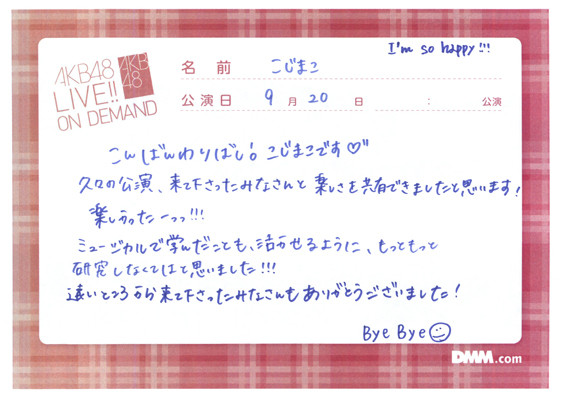 I'm so happy!!!
AKB48
LIVE!!
ON DEMAND
AKB
48
名前 こじまこ
公演日 9月20日 : 公演
こんばんわりばし! こじまこです♡"
久々の公演、来て下さったみなさんと楽しさを共有できましたと思います!
楽しかったーっっ!!!
ミュージカルで学んだことも、活かせるように、もっともっと
研究しなくてはと思いました!!!
遠いところから来て下さったみなさんもありがとうございました!
Bye Bye☺
DMM.com